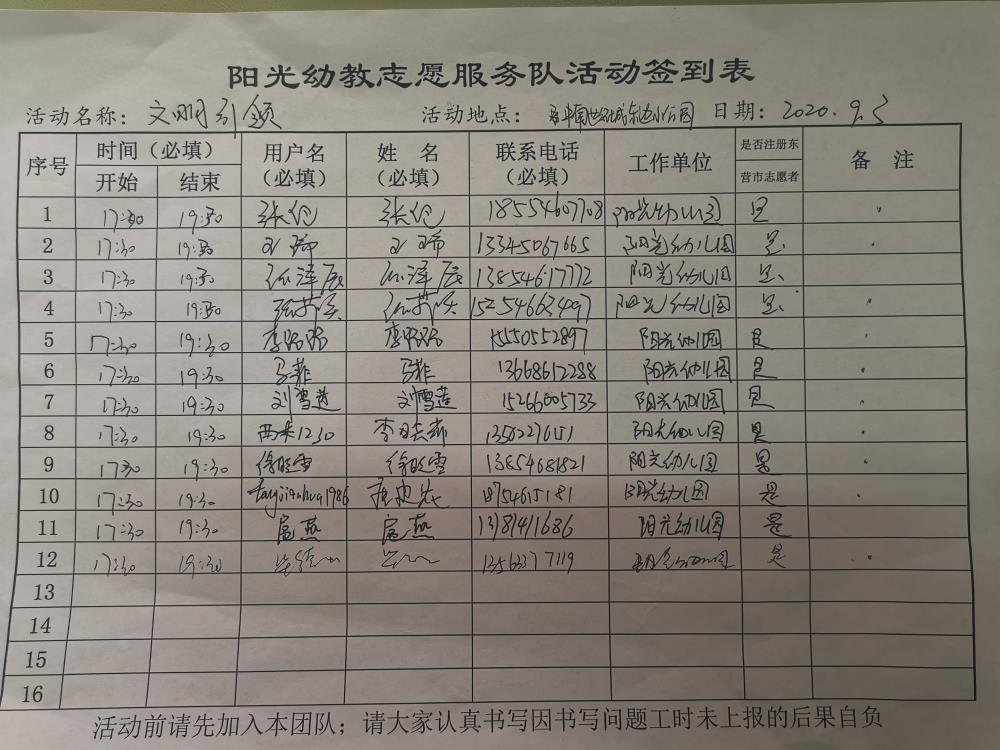 阳光幼教志愿服务队活动签到表
活动名称: 文明引领 活动地点: 日期: 2020.9.5
序号 时间(必填) 开始 结束 用户名(必填) 姓名(必填) 联系电话(必填) 工作单位 是否注册东营市志愿者 备注
1 17:30 19:30 张伦 张伦 18554607708 阳光幼儿园 是
2 17:30 19:30 13345067665 阳光幼儿园 是
3 17:30 19:30 13854617772 阳光幼儿园 是
4 17:30 19:30 15254663497 阳光幼儿园 是
5 17:30 19:30 李路路 李路路 15550552897 阳光幼儿园 是
6 17:30 19:30 马菲 马菲 13668612288 阳光幼儿园 是
7 17:30 19:30 刘雪莲 刘雪莲 15266005733 阳光幼儿园 是
8 17:30 19:30 阳光幼儿园 是
9 17:30 19:30 徐晓雪 徐晓雪 13854681821 阳光幼儿园 是
10 17:30 19:30 阳光幼儿园 是
11 17:30 19:30 扈燕 扈燕 阳光幼儿园 是
12 17:30 19:30 是
13
14
15
16
活动前请先加入本团队;请大家认真书写因书写问题工时未上报的后果自负